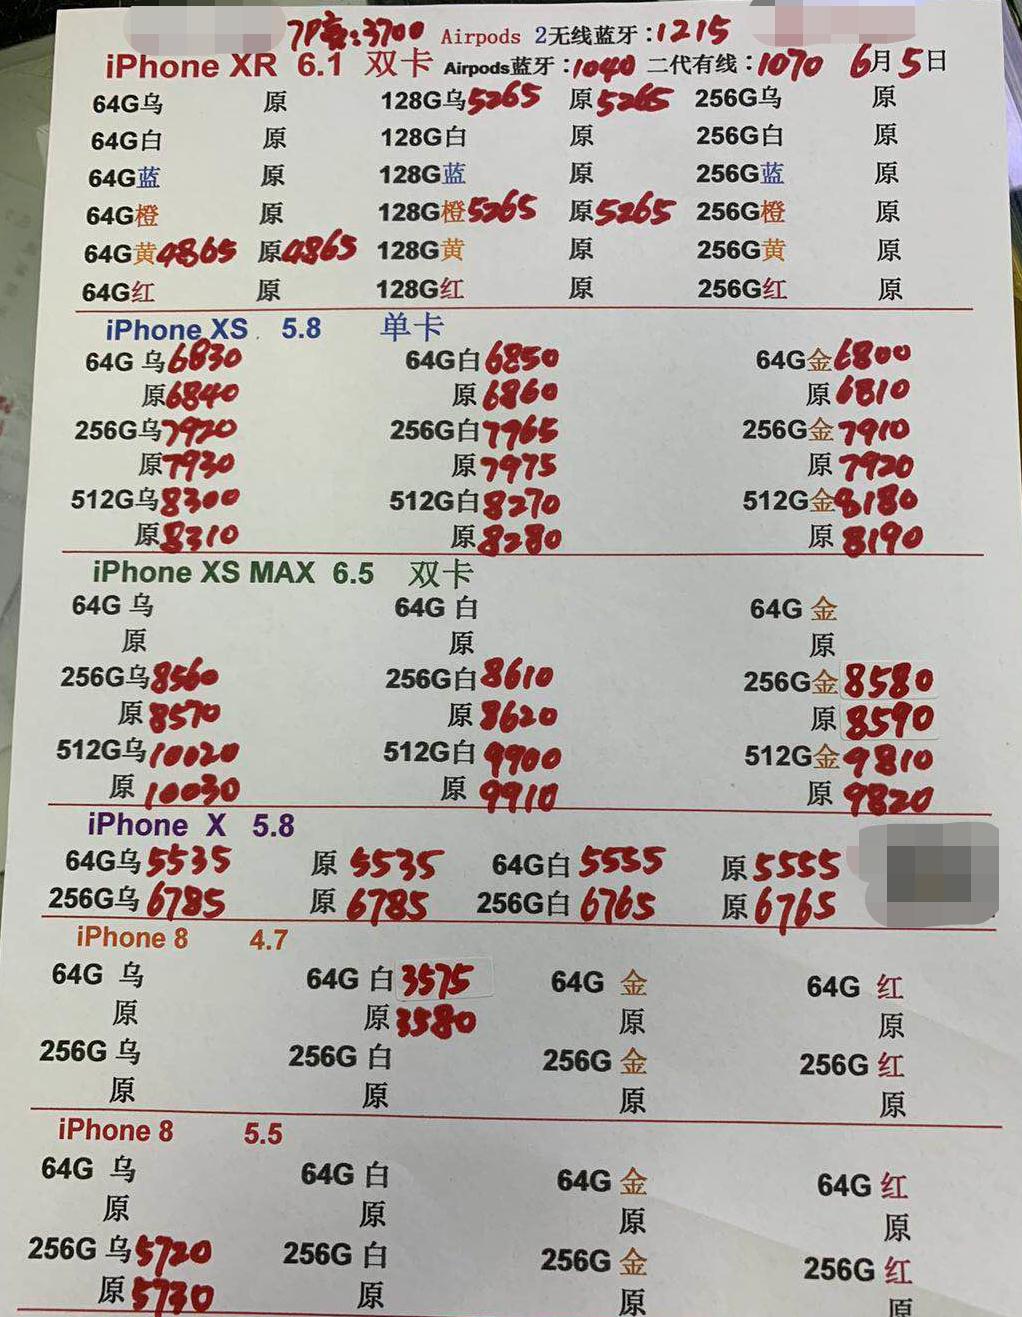 7P亮:3700 Airpods 2无线蓝牙:1215
iPhone XR 6.1 双卡 Airpods蓝牙:1040 二代有线:1070 6月5日
64G乌 原 128G乌5265 原5265 256G乌 原
64G白 原 128G白 原 256G白 原
64G蓝 原 128G蓝 原 256G蓝 原
64G橙 原 128G橙5265 原5265 256G橙 原
64G黄4865 原4865 128G黄 原 256G黄 原
64G红 原 128G红 原 256G红 原
iPhone XS 5.8 单卡
64G 乌6830 64G白6850 64G金6800
原6840 原6860 原6810
256G乌7920 256G白7965 256G金7910
原7930 原7975 原7920
512G乌8300 512G白8270 512G金8180
原8310 原8280 原8190
iPhone XS MAX 6.5 双卡
64G 乌 64G 白 64G 金
原 原 原
256G乌8560 256G白8610 256G金8580
原8570 原8620 原8590
512G乌10020 512G白9900 512G金9810
原10030 原9910 原9820
iPhone X 5.8
64G乌5535 原5535 64G白5555 原5555
256G乌6785 原6785 256G白6765 原6765
iPhone 8 4.7
64G 乌 64G 白3575 64G 金 64G 红
原 原3580 原 原
256G 乌 256G 白 256G 金 256G 红
原 原 原 原
iPhone 8 5.5
64G 乌 64G 白 64G 金 64G 红
原 原 原 原
256G 乌5720 256G 白 256G 金 256G 红
原5730 原 原 原